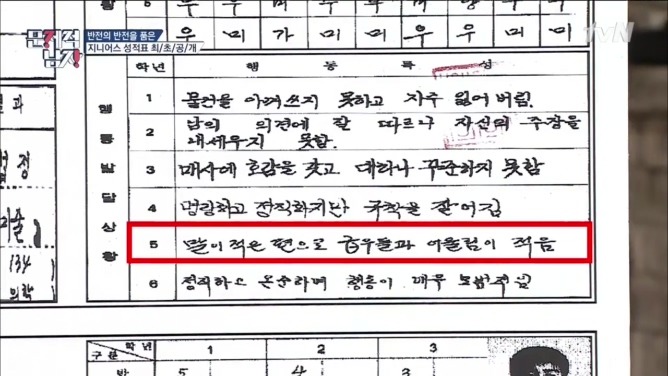 문제적 남자
반전의 반전을 품은
지니어스 성적표 최/초/공/개
tvN
학년 행동특성
행동발달상황
1 물건을 아껴쓰지 못하고 자주 잃어버림.
2 남의 의견에 잘 따르나 자신의 주장을
내세우지 못함.
3 매사에 호감을 갖고 대하나 꾸준하지 못함
4 명랑하고 정직하지만 규칙을 잘 어김
5 말이 적은 편으로 급우들과 어울림이 적음
6 정직하고 온순하며 행동이 매우 모범적임
134
의학
구분 학년 1 2 3